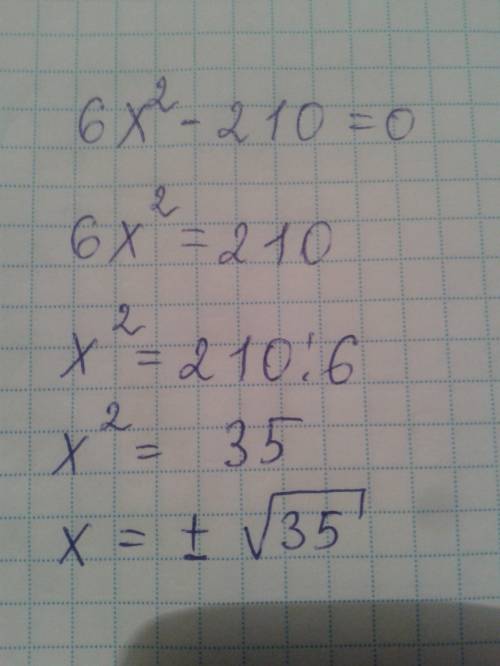 6x² - 210 = 0
6x² = 210
x² = 210 : 6
x² = 35
x = ± √35